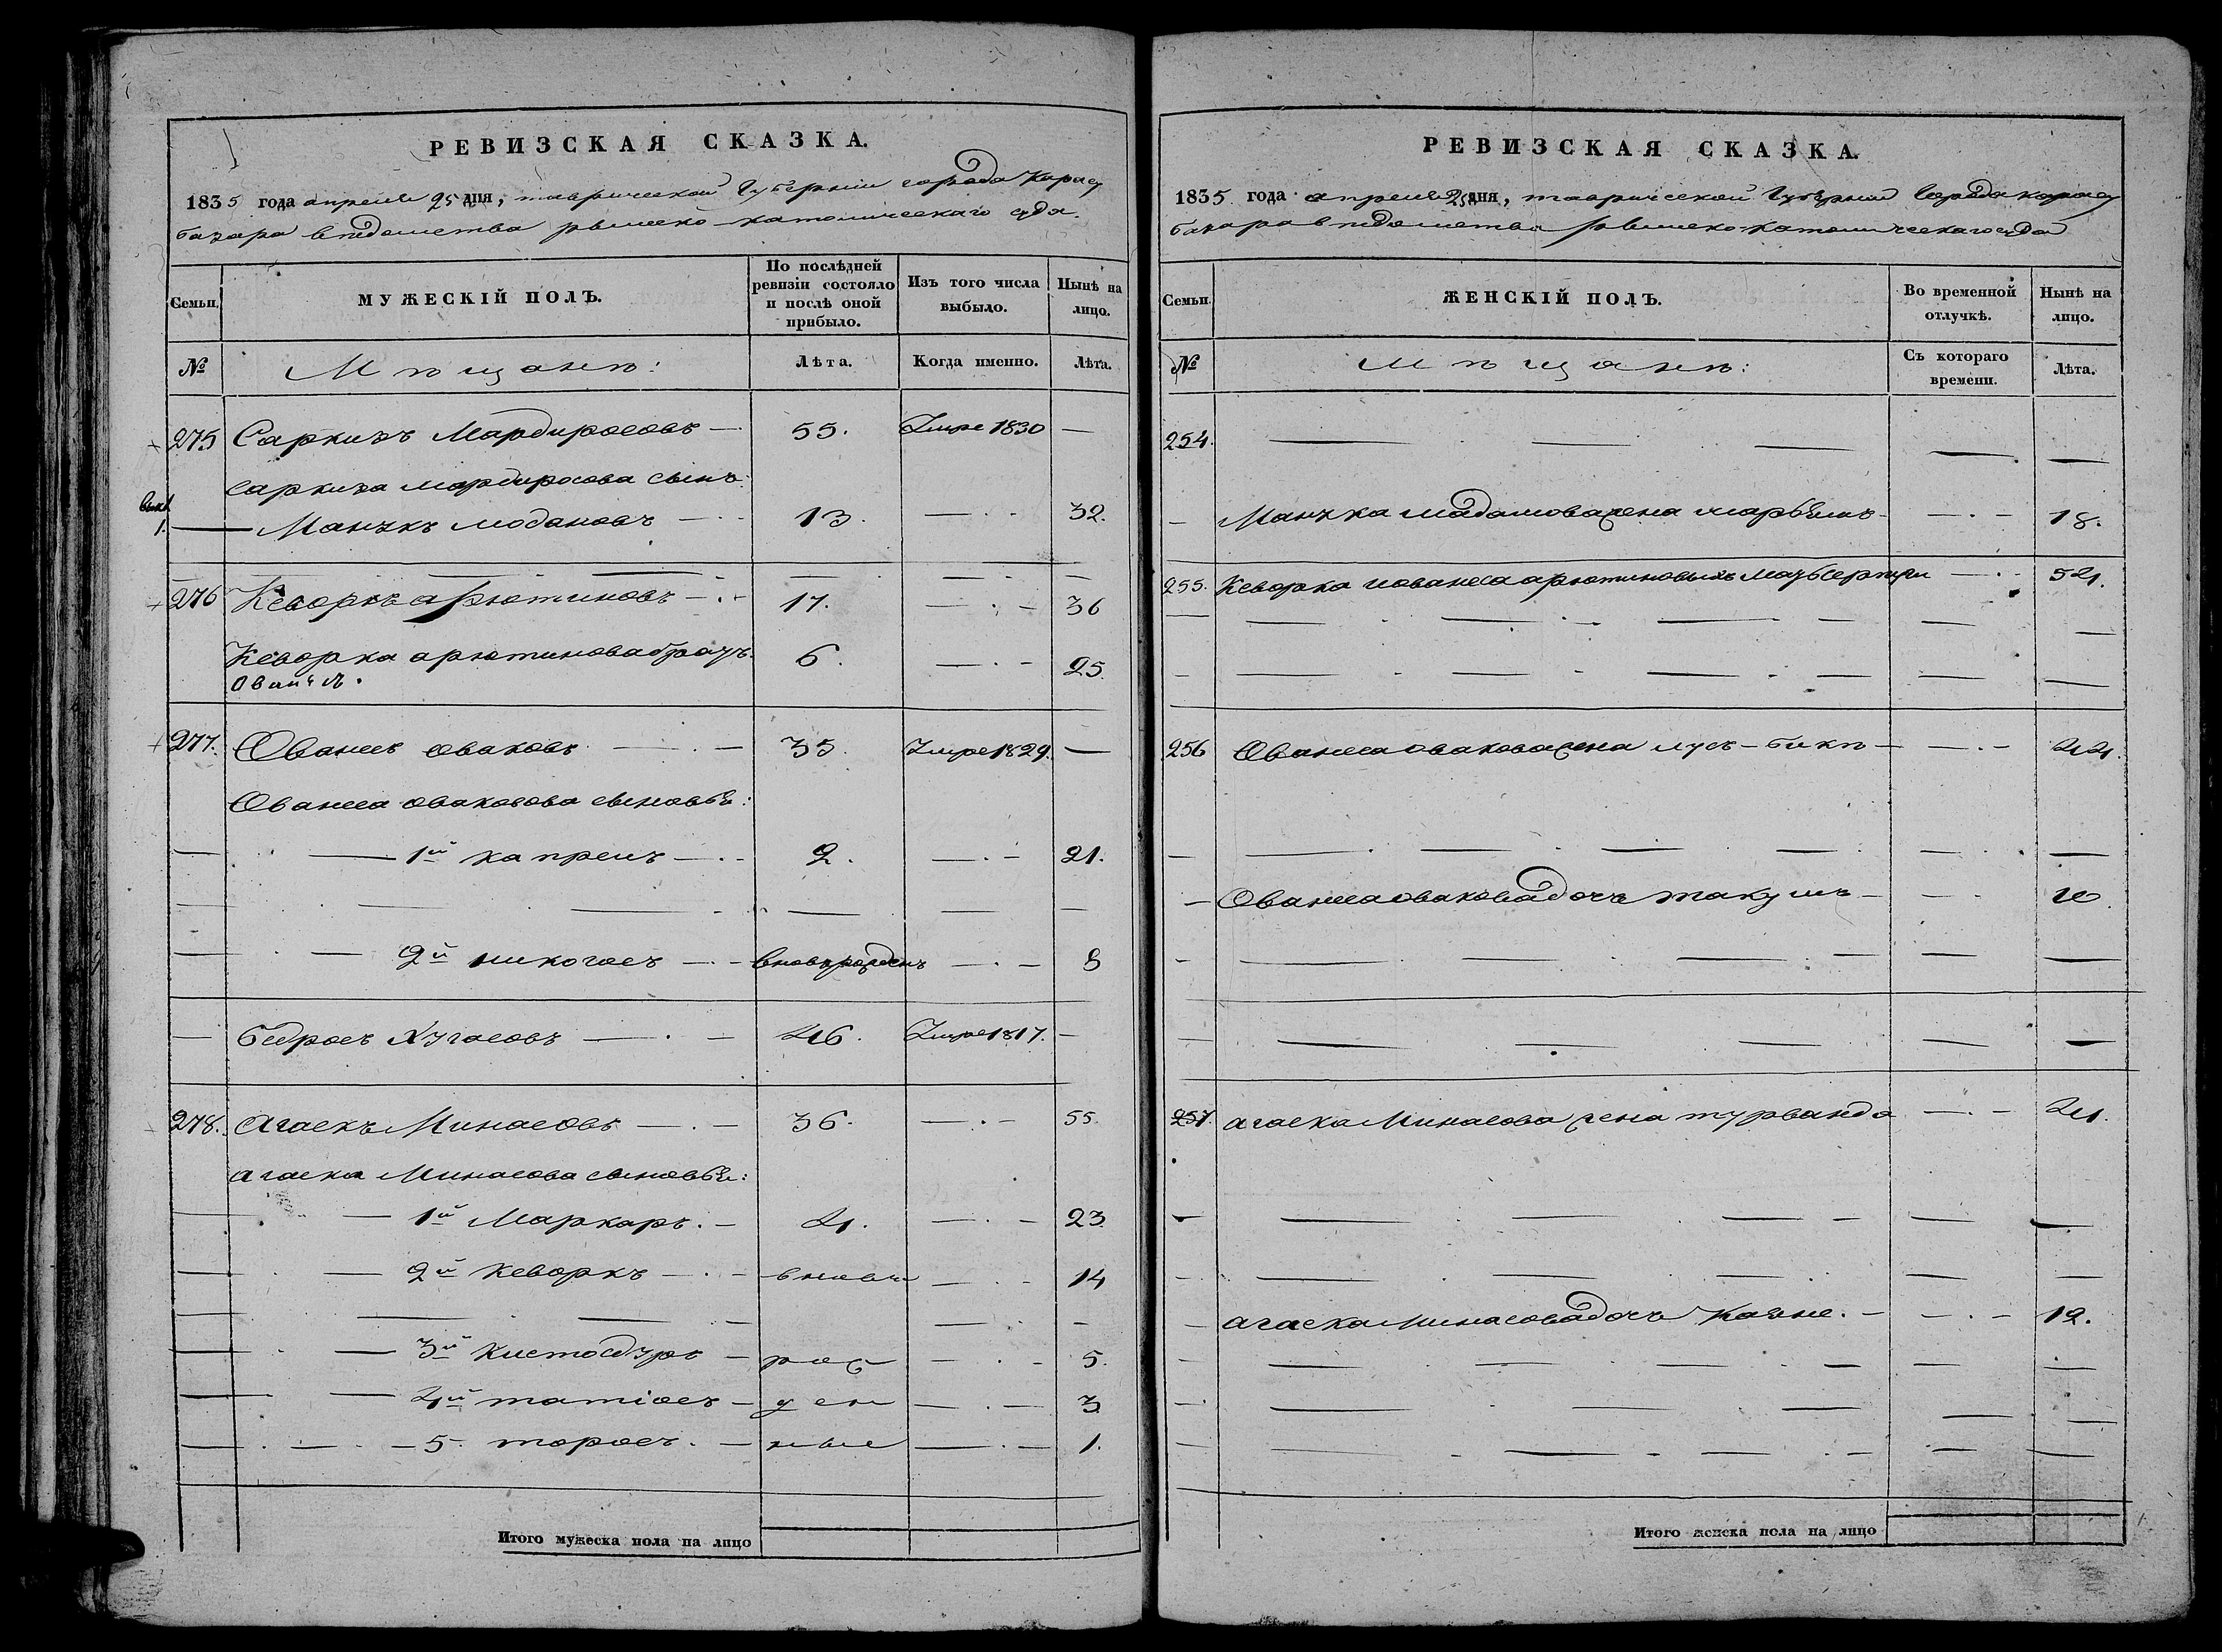 РЕВИЗСКАЯ СКАЗКА.
1835 года апреля 25 дня, таврической Губернии города Карасу
базара ведомства римско-католическаго суда.
Семьи. МУЖЕСКІЙ ПОЛЪ. По послѣдней ревизіи состояло и послѣ оной прибыло. Изъ того числа выбыло. Нынѣ на лицо.
№ Мѣщанѣ: Лѣта. Когда именно. Лѣта.
275 Саркизъ Мардиросовъ — 55. Умре 1830 —
саркиза мардиросова сынъ:
1. — Манукъ — 13. — 32.
276 Кеворкъ арютиновъ — 17. — 36
Кеворка арютинова братъ 6. — 25.
Ованесъ.
277. Ованесъ оваковъ — 35. Умре 1829. —
Ованеса овакова сыновья:
— 1й капрелъ — 2. — 21.
— 2й никогосъ — вновьрожденъ — 8
— бедросъ Хугасовъ — 46. Умре 1817. —
278. Агасекъ Минасовъ — 36. — 55.
агасека Минасова сыновья:
— 1й Маркаръ. — 4. — 23.
— 2й Кеворкъ — вновь — 14
— 3й — рож — 5.
— 4й татіосъ — ден — 3.
— 5. торосъ. — ные — 1.
Итого мужеска пола на лицо
РЕВИЗСКАЯ СКАЗКА.
1835 года апреля 25 дня, таврической Губернии города карасу
базара ведомства римско-католическаго суда
Семьи. ЖЕНСКІЙ ПОЛЪ. Во временной отлучкѣ. Нынѣ на лицо.
№ Мѣщанѣ: Съ котораго времени. Лѣта.
254. — — —
— Манука жена — 18.
255. Кеворка иованеса арютиновыхъ мать — 54.
256 Ованеса овакова жена лусъ-бике — — 44.
— Ованеса овакова дочь такушъ — — 10.
257. агасека Минасова жена турванда — 41.
— агасека минасова дочь — — 12.
Итого женска пола на лицо